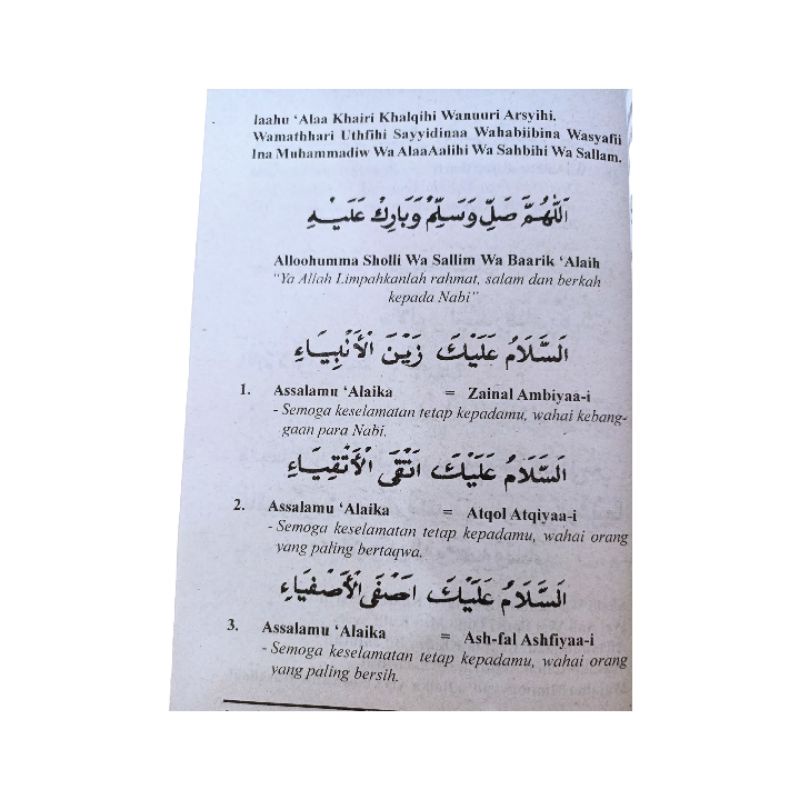 laahu ‘Alaa Khairi Khalqihi Wanuuri Arsyihi.
Wamathhari Uthfihi Sayyidinaa Wahabiibina Wasyafii
Ina Muhammadiw Wa AlaaAalihi Wa Sahbihi Wa Sallam.
اَللّٰهُمَّ صَلِّ وَسَلِّمْ وَبَارِكْ عَلَيْهِ
Alloohumma Sholli Wa Sallim Wa Baarik ‘Alaih
“Ya Allah Limpahkanlah rahmat, salam dan berkah
kepada Nabi”
اَلسَّلَامُ عَلَيْكَ زَيْنَ الْأَنْبِيَاءِ
1. Assalamu ‘Alaika = Zainal Ambiyaa-i
- Semoga keselamatan tetap kepadamu, wahai kebang-
gaan para Nabi.
اَلسَّلَامُ عَلَيْكَ اَتْقَى الْأَتْقِيَاءِ
2. Assalamu ‘Alaika = Atqol Atqiyaa-i
- Semoga keselamatan tetap kepadamu, wahai orang
yang paling bertaqwa.
اَلسَّلَامُ عَلَيْكَ اَصْفَى الْأَصْفِيَاءِ
3. Assalamu ‘Alaika = Ash-fal Ashfiyaa-i
- Semoga keselamatan tetap kepadamu, wahai orang
yang paling bersih.